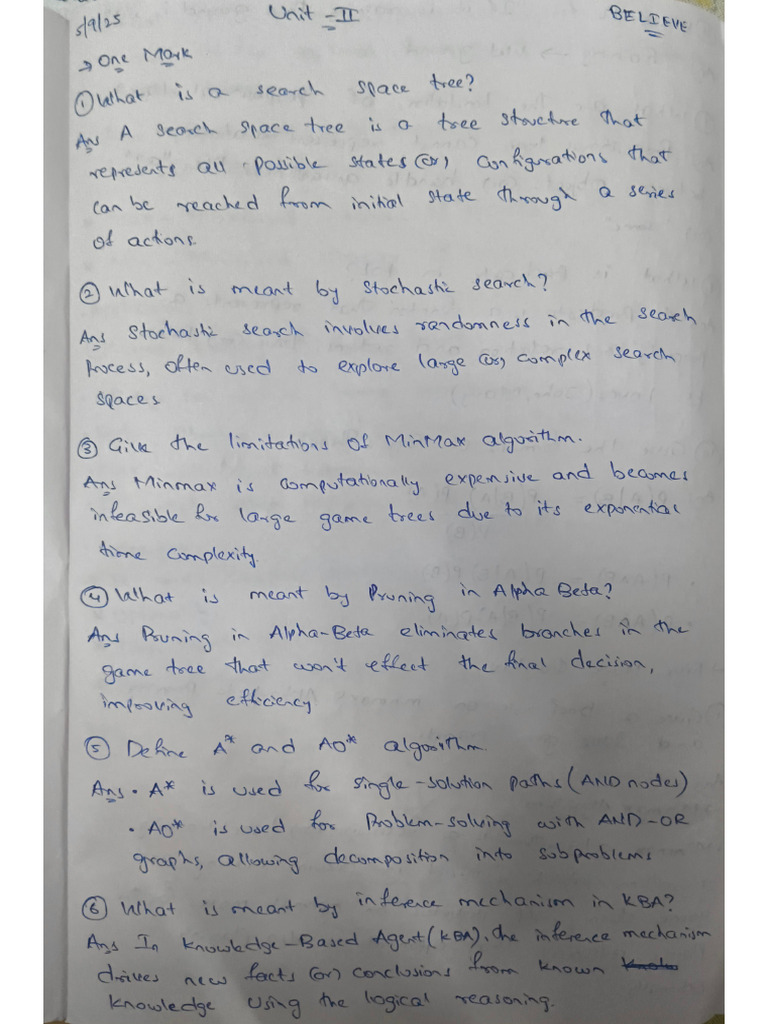 5/9/25 Unit - II BELIEVE
→ One Mark
① What is a search space tree?
Ans A search space tree is a tree structure that
represents all possible states (or) configurations that
can be reached from initial state through a series
of actions.
② What is meant by Stochastic search?
Ans Stochastic search involves randomness in the search
process, often used to explore large (or) complex search
spaces
③ Give the limitations of MinMax algorithm.
Ans Minmax is computationally expensive and becomes
infeasible for large game trees due to its exponential
time complexity.
④ What is meant by Pruning in Alpha Beta?
Ans Pruning in Alpha-Beta eliminates branches in the
game tree that won't effect the final decision,
improving efficiency
⑤ Define A* and AO* algorithm.
Ans • A* is used for single-solution paths (AND nodes)
• AO* is used for Problem-solving with AND-OR
graphs, allowing decomposition into subproblems
⑥ What is meant by inference mechanism in KBA?
Ans In Knowledge-Based Agent (KBA), the inference mechanism
drives new facts (or) conclusions from known
knowledge using the logical reasoning.